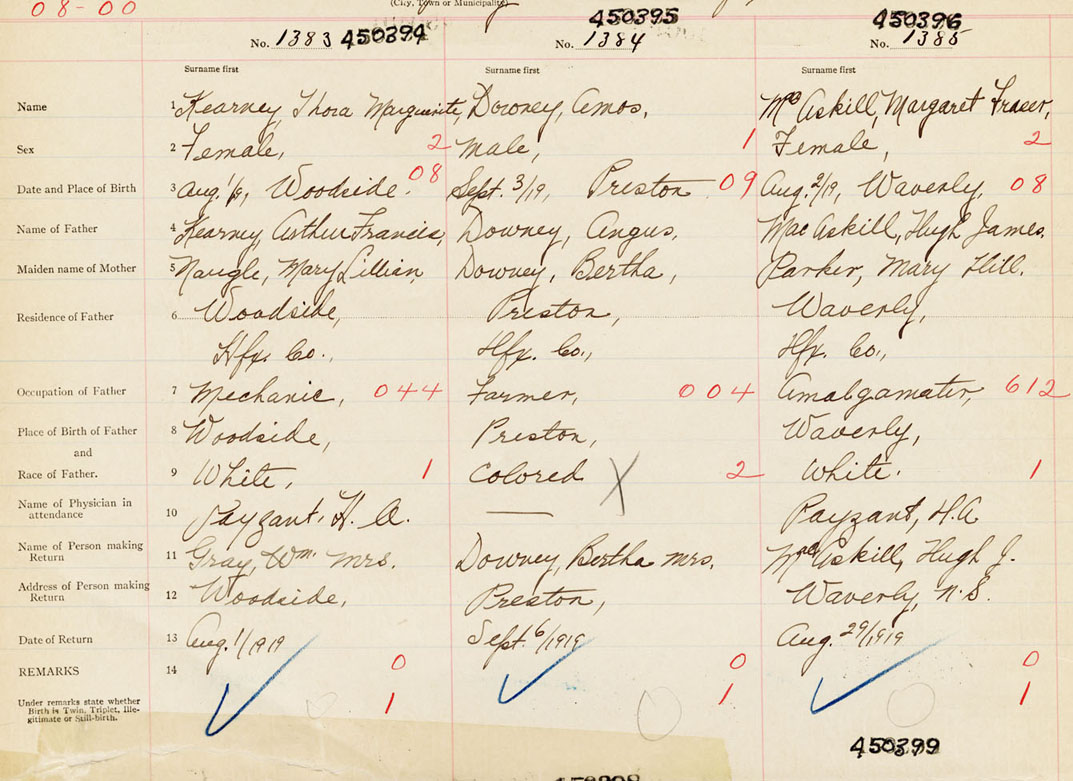 (City, Town or Municipality)
08-00
450395 450396
No. 1383 450394 No. 1384 No. 1385
Surname first Surname first Surname first
Name 1 Kearney, Thora Marguerite, Downey, Amos, McAskill, Margaret Fraser,
Sex 2 Female, 2 Male, 1 Female, 2
Date and Place of Birth 3 Aug. 1/19, Woodside. 08 Sept. 3/19, Preston 09 Aug. 2/19, Waverly, 08
Name of Father 4 Kearney, Arthur Francis, Downey, Angus, MacAskill, Hugh James.
Maiden name of Mother 5 Naugle, Mary Lillian, Downey, Bertha, Parker, Mary Hill.
Residence of Father 6 Woodside, Preston, Waverly,
Hfx. Co., Hfx. Co., Hfx. Co.,
Occupation of Father 7 Mechanic, 044 Farmer, 004 Amalgamator, 612
Place of Birth of Father 8 Woodside, Preston, Waverly,
and
Race of Father. 9 White, 1 Colored X 2 White. 1
Name of Physician in
attendance 10 Payzant, H. A. — Payzant, H.A
Name of Person making
Return 11 Gray, Wm. Mrs. Downey, Bertha Mrs. McAskill, Hugh J.
Address of Person making
Return 12 Woodside, Preston, Waverly, N.S.
Date of Return 13 Aug. 1/1919 Sept. 6/1919 Aug. 29/1919
REMARKS 14 0 0 0
Under remarks state whether
Birth is Twin, Triplet, Ille-
gitimate or Still-birth.
1 1 1
450399